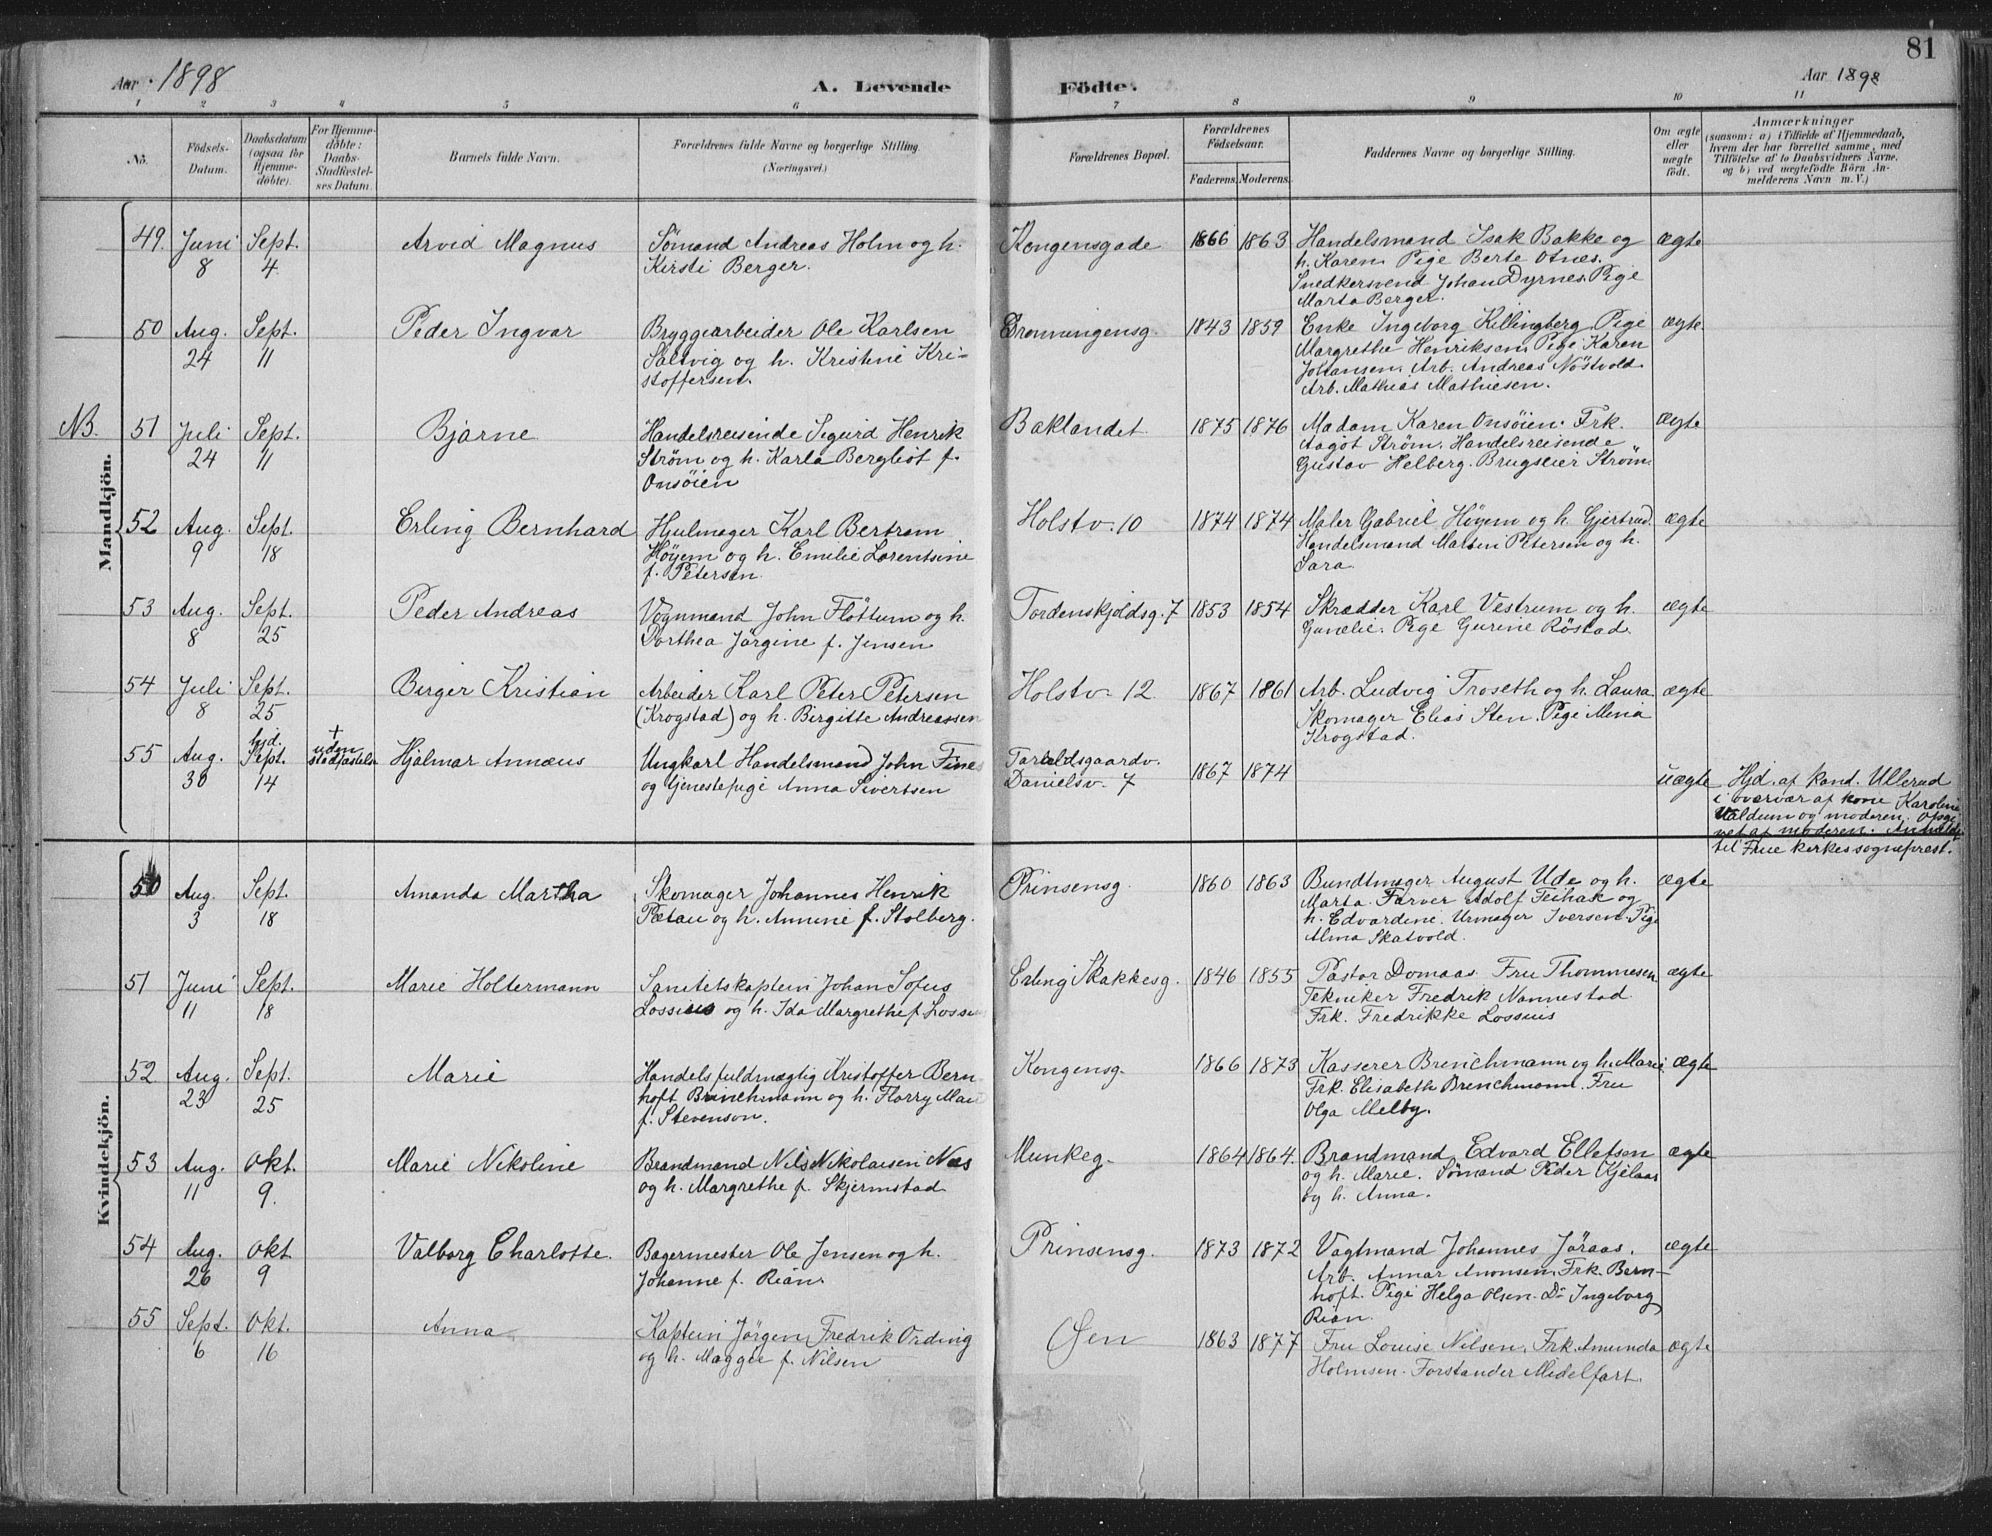 81
Aar 1898
A. Levende
Födte.
Aar 1898
1 2 3 4 5 6 7 8 9 10 11
No.
Födsels-
Datum.
Daabsdatum
(ogsaa for
Hjemme-
döbte).
For Hjemme-
döbte:
Daabs-
Stadfæstel-
ses Datum.
Barnets fulde Navn.
Forældrenes fulde Navne og borgerlige Stilling.
(Næringsvei.)
Forældrenes Bopæl.
Forældrenes
Födselsaar.
Faderens. Moderens.
Faddernes Navne og borgerlige Stilling.
Om ægte
eller
uægte
födt.
Anmærkninger
(saasom: a) i Tilfælde af Hjemmedaab,
hvem der har forrettet samme, med
Tilföielse af to Daabsvidners Navne.
og b) ved uægtefödte Börn An-
melderens Navn m. V.)
Mandkjön.
49. Juni 8 Sept. 4. Arvid Magnus
Sömand Andreas Holm og h.
Kirsti Berger.
Kongensgade 1866 1863
Handelsmand Isak Bakke og
h. Karen. Pige Berte Otnes.
Snedkersvend Johan Dyrnes. Pige
Marta Berger.
ægte
50 Aug. 24 Sept. 11 Peder Ingvar
Bryggearbeider Ole Karlsen
Saltvig og h. Kristine Kri-
stoffersen.
Dronningensg. 1843 1859
Enke Ingeborg Killingberg. Pige
Margrethe Henriksen. Pige Karen
Johansen. Arb. Andreas Nöstvold.
Arb. Mathias Mathiesen.
ægte
NB. 51 Juli 24 Sept. 11 Bjarne
Handelsreisende Sigurd Henrik
Ström og h. Karla Bergliot f.
Onsöien
Baklandet 1875 1876
Madam Karen Onsöien. Frk.
Aagot Ström. Handelsreisende
Gustav Helberg. Brugseier Ström
ægte
52 Aug. 9 Sept. 18 Erling Bernhard
Hjulmager Karl Bertram
Höyem og h. Emilie Lorentsine
f. Petersen.
Holstv. 10 1874 1874
Maler Gabriel Höyem og h. Gjertrud.
Handelsmand Marten Petersen og h.
Sara.
ægte
53 Aug. 8 Sept. 25 Peder Andreas
Vognmand John Flöttum og h.
Dorthea Jörgine f. Jensen
Tordenskjoldsg. 7 1853 1854
Skrædder Karl Vestrum og h.
Gunelie. Pige Gurine Röstad.
ægte
54 Juli 8 Sept. 25 Birger Kristian
Arbeider Karl Peter Petersen
(Krogstad) og h. Birgitte Andreassen
Holstv. 12 1867 1861
Arb. Ludvig Troseth og h. Laura.
Skomager Elias Sten. Pige Mina
Krogstad.
ægte
55 Aug. 30 hjd. Sept. 14 + uden stadfæstels Hjalmar Annæus
Ungkarl Handelsmand John Fines
og Tjenestepige Anna Sivertsen
Taraldsgaardv.
Danielsv. 7 1867 1874
uægte
Hjd. af kand. Ullerud
i overvær af kone Karoline
Valdum og moderen. Opgi-
vet af moderen. Anmeldt
til Frue kirkes sogneprest.
Kvindekjön.
50 Aug. 3 Sept. 18 Amanda Martha
Skomager Johannes Henrik
Pætau og h. Annine f. Stolberg.
Prinsensg. 1860 1863
Bundtmager August Ude og h.
Marta. Farver Adolf Feihak og
h. Edvardine. Urmager Iversen. Pige
Alma Skatvold.
ægte
51 Juni 11 Sept. 18 Marie Holtermann
Sanitetskaptein Johan Sofus
Lossius og h. Ida Margrethe f. Lossius
Erling Skakkesg. 1846 1855
Pastor Domaas. Fru Thommesen
Tekniker Fredrik Nannestad.
Frk. Fredrikke Lossius
ægte
52 Aug. 23 Sept. 25 Marie
Handelsfuldmægtig Kristoffer Bern-
hoft Brinchmann og h. Florry Mai
f. Stevenson.
Kongensg. 1866 1873
Kasserer Brinchmann og h. Marie.
Frk. Elisabeth Brinchmann. Fru
Olga Melby.
ægte
53 Aug. 11 Okt. 9. Marie Nikoline
Brandmand Nils Nikolaisen Næs
og h. Margrethe f. Skjermstad
Munkeg. 1864 1864.
Brandmand Edvard Ellefsen
og h. Marie. Sömand Peder Kjelaas
og h. Anna.
ægte
54 Aug. 26 Okt 9 Valborg Charlotte.
Bagermester Ole Jensen og h.
Johanne f. Rian.
Prinsensg. 1873 1872
Vagtmand Johannes Jöraas.
Arb. Annar Aronsen. Frk. Bern-
hoft. Pige Helga Olsen. Do Ingeborg
Rian.
ægte
55 Sept. 6 Okt. 16 Anna
Kaptein Jörgen Fredrik Ording
og h. Maggie f. Nilsen
Øen 1863 1877
Fru Louise Nilsen. Frk. Amunda
Holmsen. Forstander Midelfart.
ægte